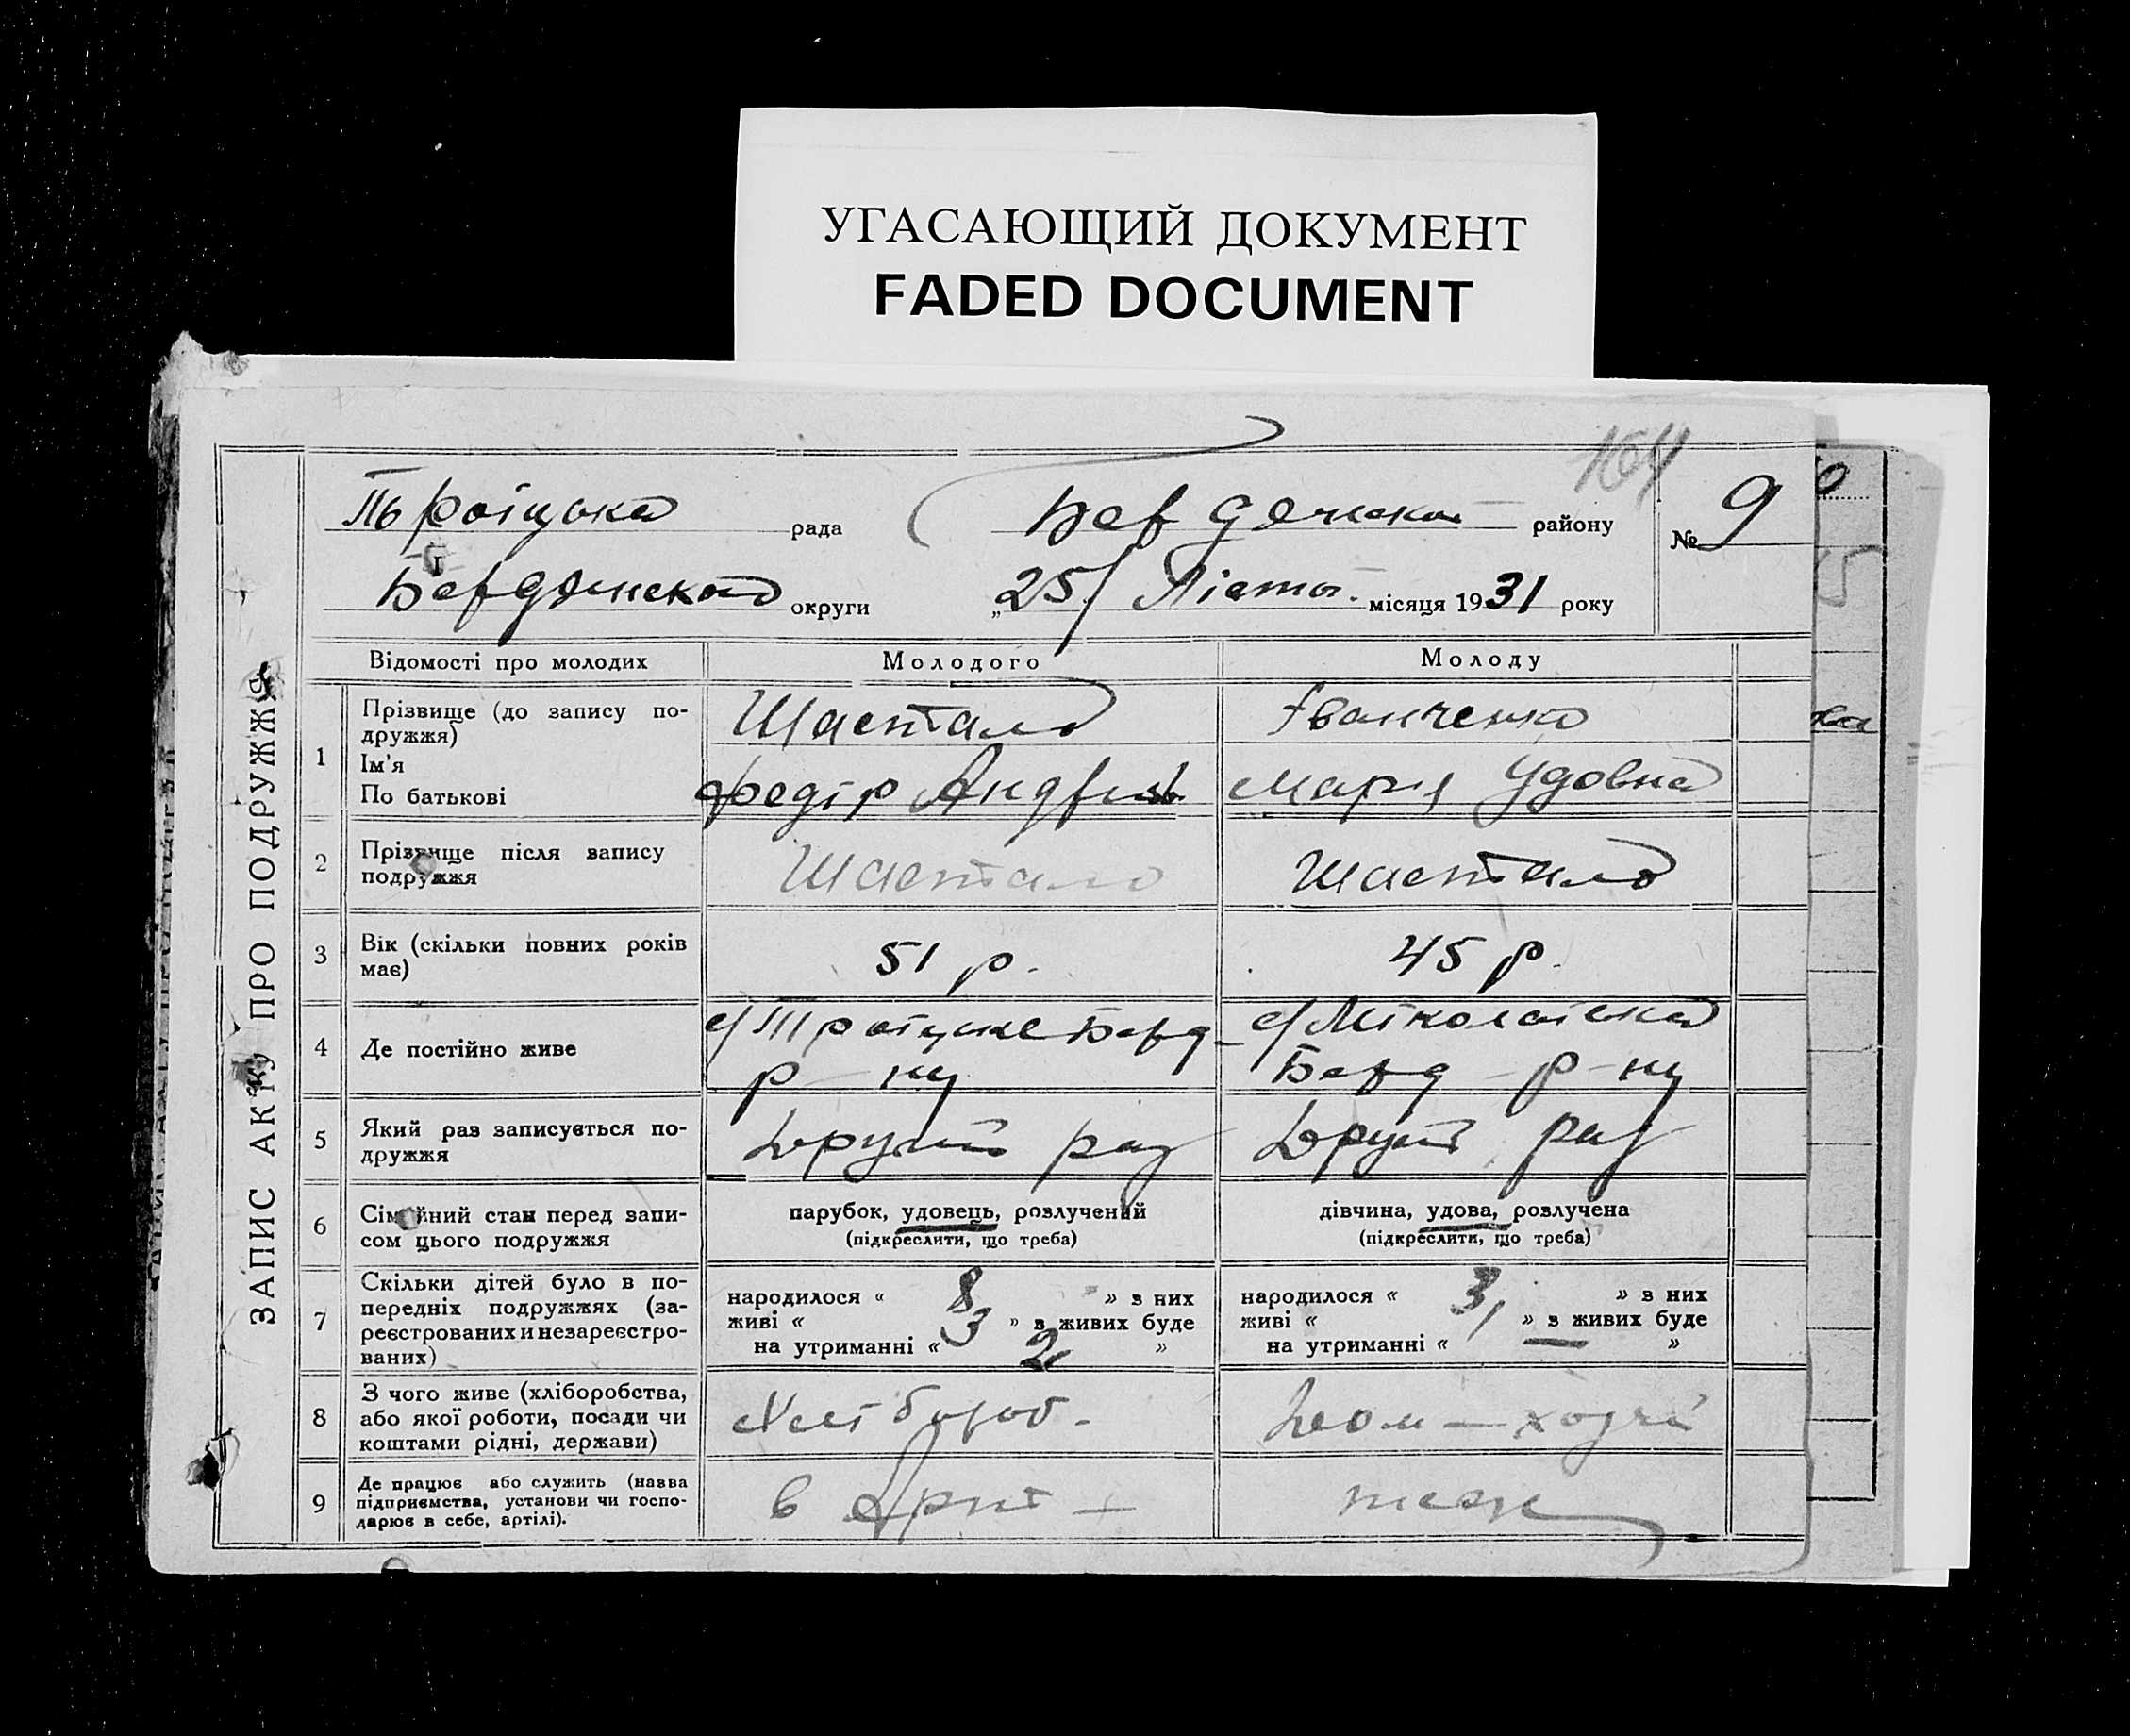 УГАСАЮЩИЙ ДОКУМЕНТ
FADED DOCUMENT
164
Троїцька рада Бердянском району № 9
Бердянской округи „25 Лісто. місяця 1931 року
ЗАПИС АКТУ ПРО ПОДРУЖЖЯ
Відомості про молодих Молодого Молоду
1 Прізвище (до запису по-
дружжя) Шастало Іванченко
Ім'я
По батькові Федір Марія Удовна
2 Прізвище після запису
подружжя Шастало Шастало
3 Вік (скільки повних років
має) 51 р. 45 р.
4 Де постійно живе с/Троіцке Берд-
р-ну
с/Міколаівка
Берд-р-ну
5 Який раз записується по-
дружжя Другий раз Другий раз
6 Сімейний стан перед запи-
сом цього подружжя парубок, удовець, розлучений
(підкреслити, що треба)
дівчина, удова, розлучена
(підкреслити, що треба)
7 Скільки дітей було в по-
передніх подружжях (за-
реєстрованих и незареєстро-
ваних)
народилося « 8 » з них
живі « 3 » з живих буде
на утриманні « 2 »
народилося « 3 » з них
живі « » з живих буде
на утриманні « — »
8 З чого живе (хліборобства,
або якої роботи, посади чи
коштами рідні, держави) Хлібороб- Дом-хозяй
9 Де працює або служить (назва
підприємства, установи чи госпо-
дарює в себе, артілі). в Арт- теж